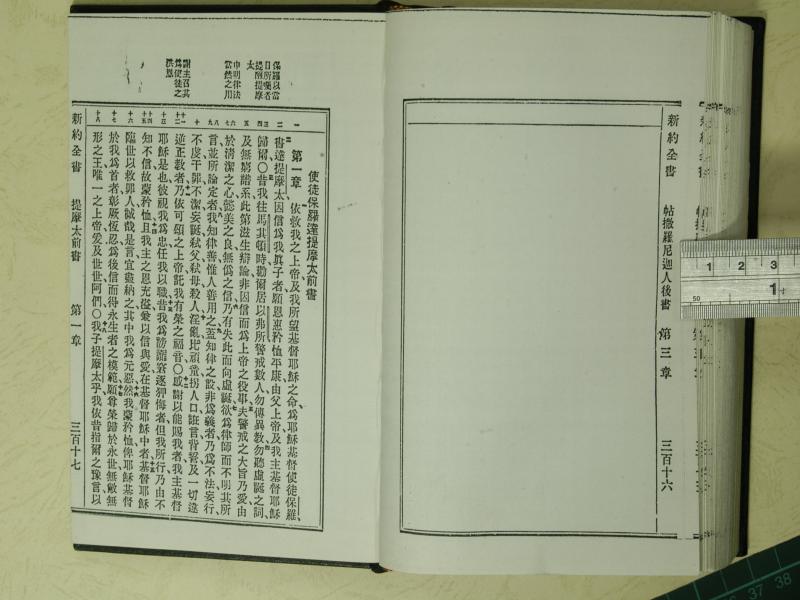 新約全書 帖撒羅尼迦人後書 第三章 三百十六
保羅以當
日所囑者
提醒提摩
太
申明律法
當然之用
謝主召其
為使徒之
洪恩
使徒保羅達提摩太前書
第一章 依救我之上帝及我所望基督耶穌之命、為耶穌基督使徒保羅、
書達提摩太因信為我眞子者、願恩惠矜恤平康、由父上帝及我主基督耶穌
歸爾、〇昔我往馬其頓時、勸爾居以弗所、警戒數人、勿傳異教、勿聽虛誕之詞、
及無窮譜系、此第滋生辯論、非因信而為上帝之役事、夫警戒之大旨、乃愛由
於清潔之心、懿美之良、無偽之信、乃有失此而向虛誕、欲為律師、而不明其所
言、並所論定者、我知律善、惟人善用之、蓋知律之設、非為義者、乃為不法、妄行、
不虔、干罪、不潔、妄誕、弒父、弒母、殺人、淫亂、比頑童、拐人口、誑言、背誓、及一切違
逆正教者、乃依可頌之上帝、託我有榮之福音、〇感謝以能賜我者、我主基督
耶穌是也、彼視我為忠、任我以職、昔我為謗讟、窘逐、狎侮者、但我所行、乃由不
知不信、故蒙矜恤、且我主之恩、充溢兼以信與愛、在基督耶穌中者、基督耶穌
臨世以救罪人、誠哉是言、宜盡納之、其中我為元惡、然我蒙矜恤、俾耶穌基督
於我為首者、彰厥恆忍、為後信而得永生者之模範、願尊榮歸於永世無敝無
形之王、唯一之上帝、爰及世世、阿們、〇我子提摩太乎、我依昔指爾之豫言、以
新約全書 提摩太前書 第一章 三百十七
1 2 3
1
50
37 38